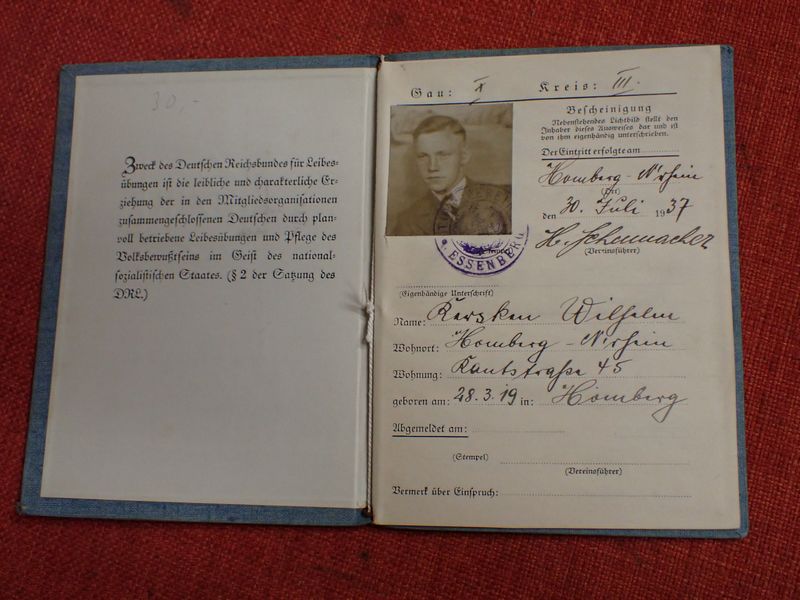 30,-
Zweck des Deutschen Reichsbundes für Leibes-
übungen ist die leibliche und charakterliche Er-
ziehung der in den Mitgliedsorganisationen
zusammengeschlossenen Deutschen durch plan-
voll betriebene Leibesübungen und Pflege des
Volksbewußtseins im Geist des national-
sozialistischen Staates. (§ 2 der Satzung des
DRL.)
Gau: X Kreis: III.
Bescheinigung
Nebenstehendes Lichtbild stellt den
Inhaber dieses Ausweises dar und ist
von ihm eigenhändig unterschrieben.
Der Eintritt erfolgte am
Homberg - N'rhein
(Ort)
den 30. Juli 1937
H. Schumacher
(Vereinsführer)
ESSENBERG
(Eigenhändige Unterschrift)
Name: Kersken Wilhelm
Wohnort: Homberg - N'rhein
Wohnung: Kantstraße 45
geboren am: 28. 3. 19 in: Homberg
Abgemeldet am:
(Stempel)
(Vereinsführer)
Vermerk über Einspruch: